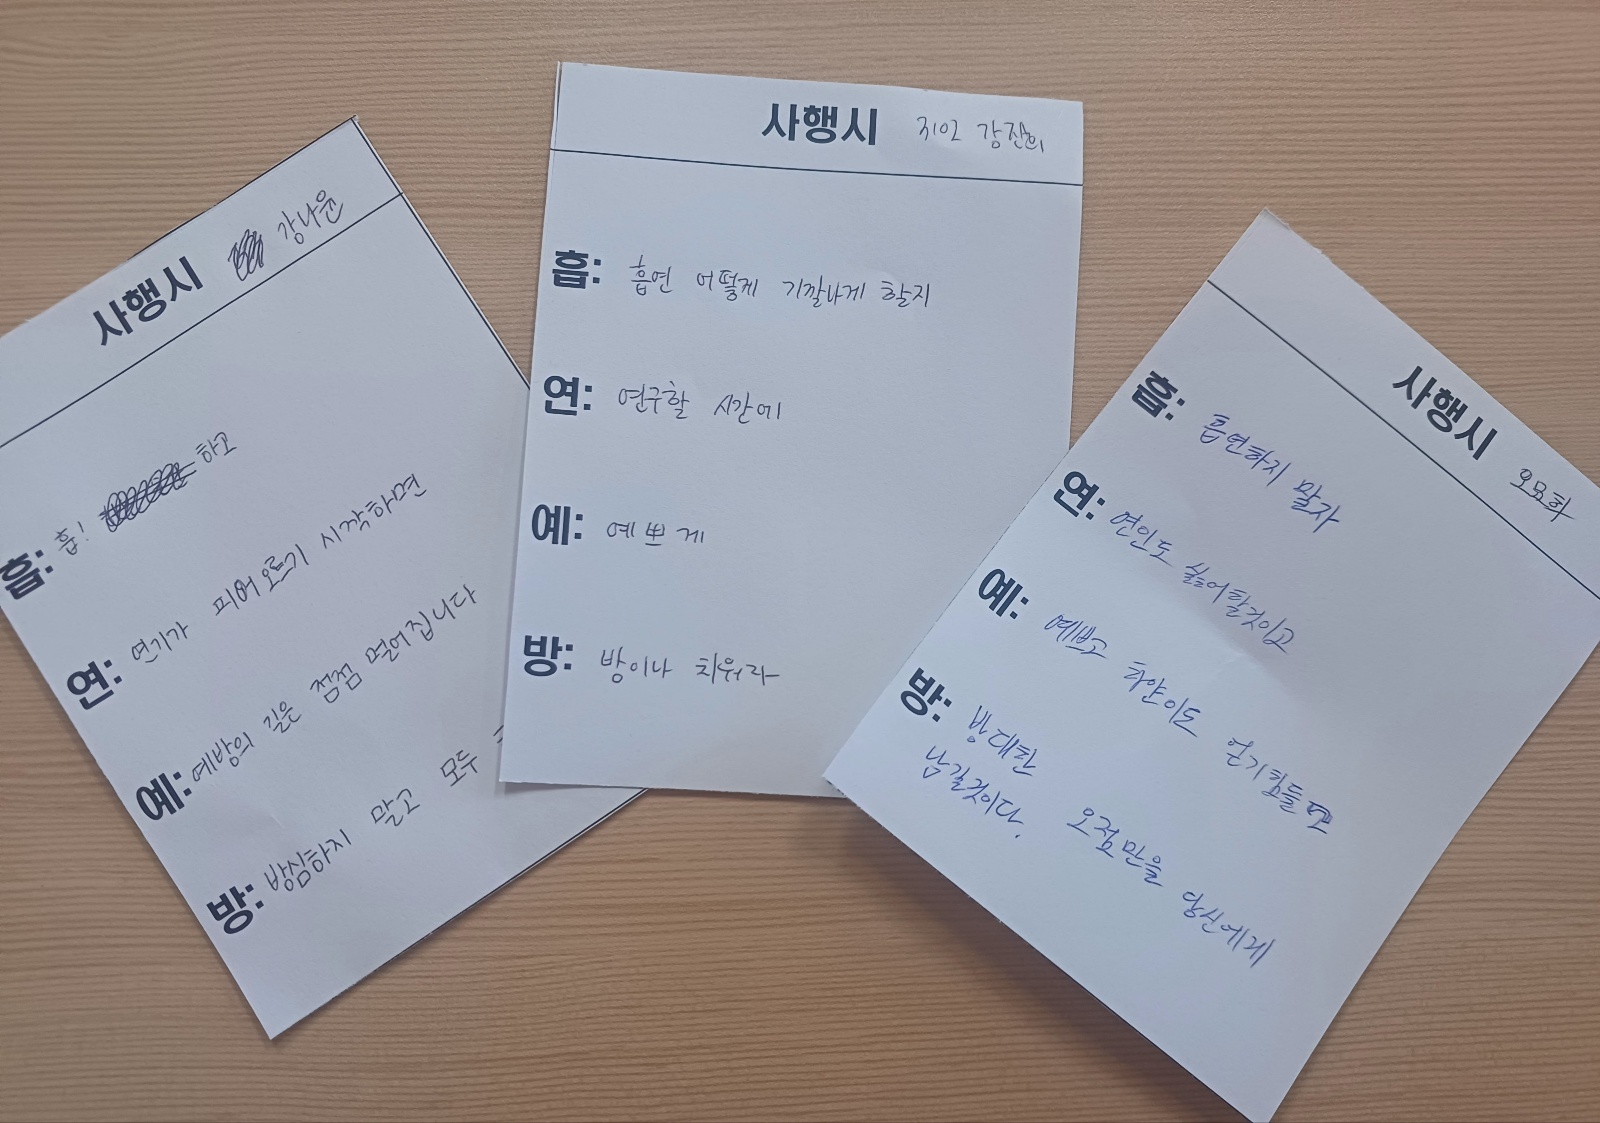 사행시 강나윤
흡: 흡! 하고
연: 연기가 피어 오르기 시작하면
예: 예방의 길은 점점 멀어집니다
방: 방심하지 말고 모두
사행시 지인 강진희
흡: 흡연 어떻게 기깔나게 할지
연: 연구할 시간에
예: 예쁘게
방: 방이나 치워라
사행시 오묘화
흡: 흡연하지 말자
연: 연인도 싫어할것이고
예: 예쁘고
방: 방대한 오점만을 당신에게
남길것이다.